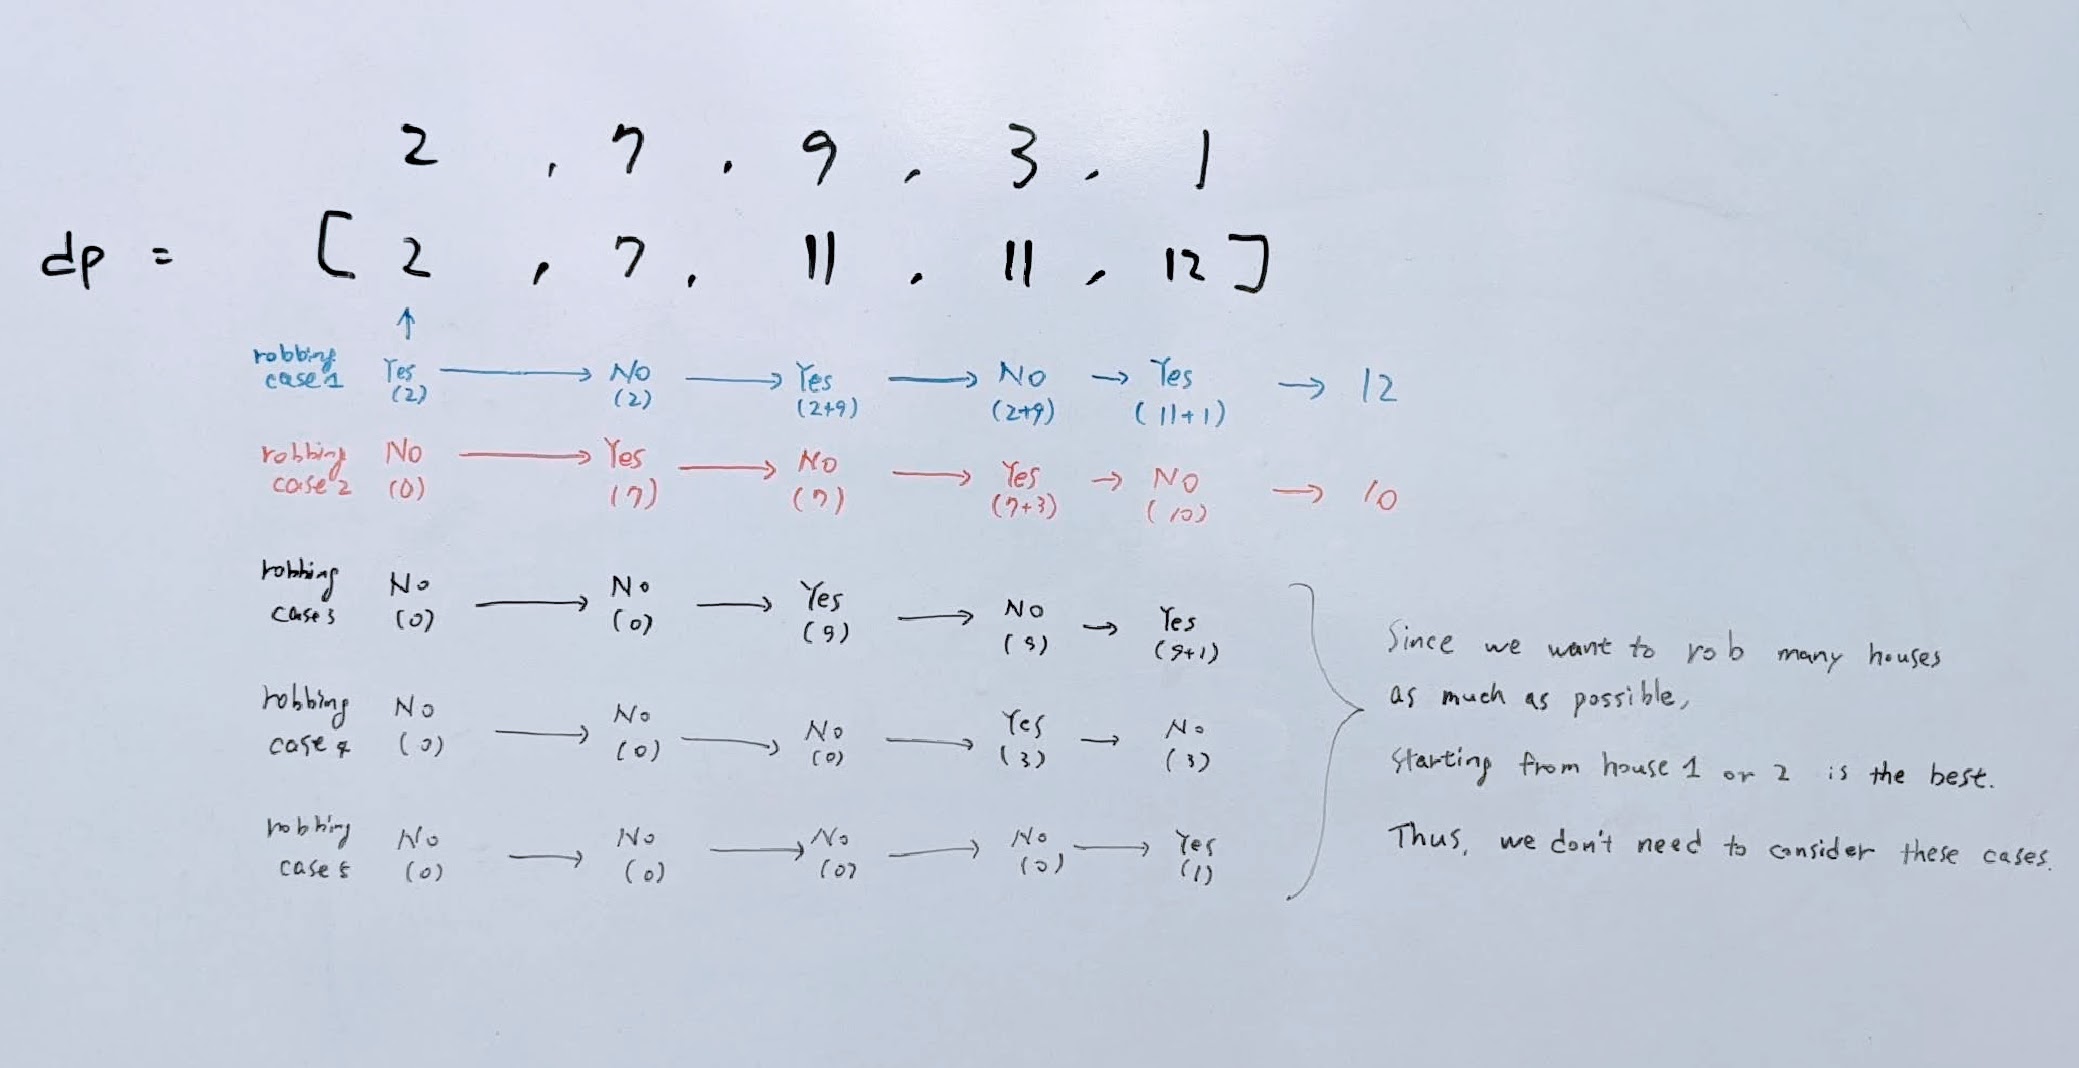 2 , 7 , 9 , 3 , 1
dp = [ 2 , 7 , 11 , 11 , 12 ]
↑
robbing case 1 Yes → No → Yes → No → Yes → 12
(2) (2) (2+9) (2+9) (11+1)
robbing case 2 No → Yes → No → Yes → No → 10
(0) (7) (7) (7+3) (10)
robbing case 3 No → No → Yes → No → Yes
(0) (0) (9) (9) (9+1)
robbing case 4 No → No → No → Yes → No
(0) (0) (0) (3) (3)
robbing case 5 No → No → No → No → Yes
(0) (0) (0) (0) (1)
Since we want to rob many houses
as much as possible,
starting from house 1 or 2 is the best.
Thus, we don't need to consider these cases.